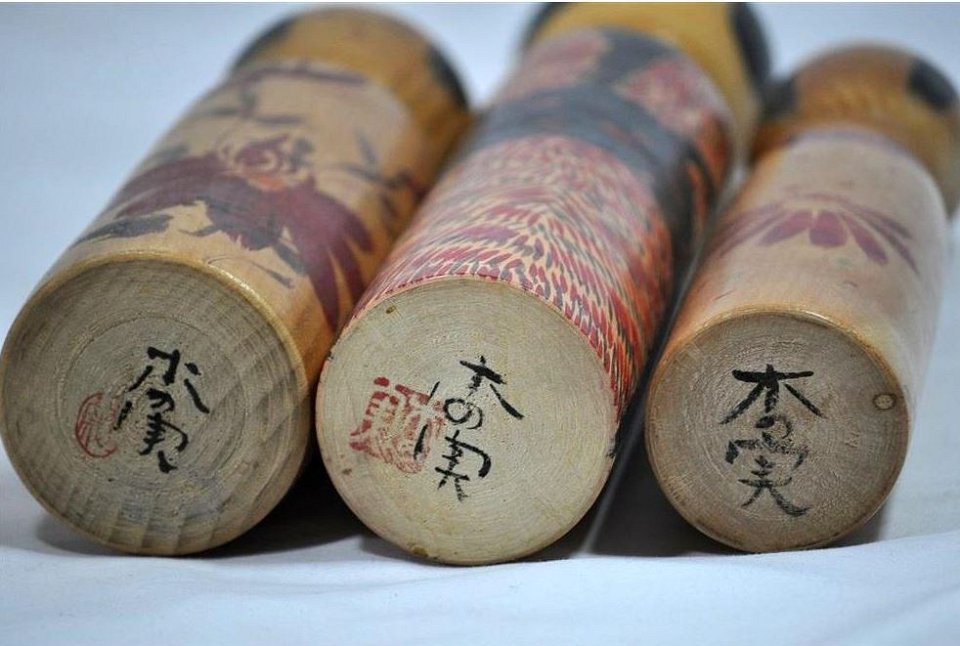 木の実
木の実
木の実